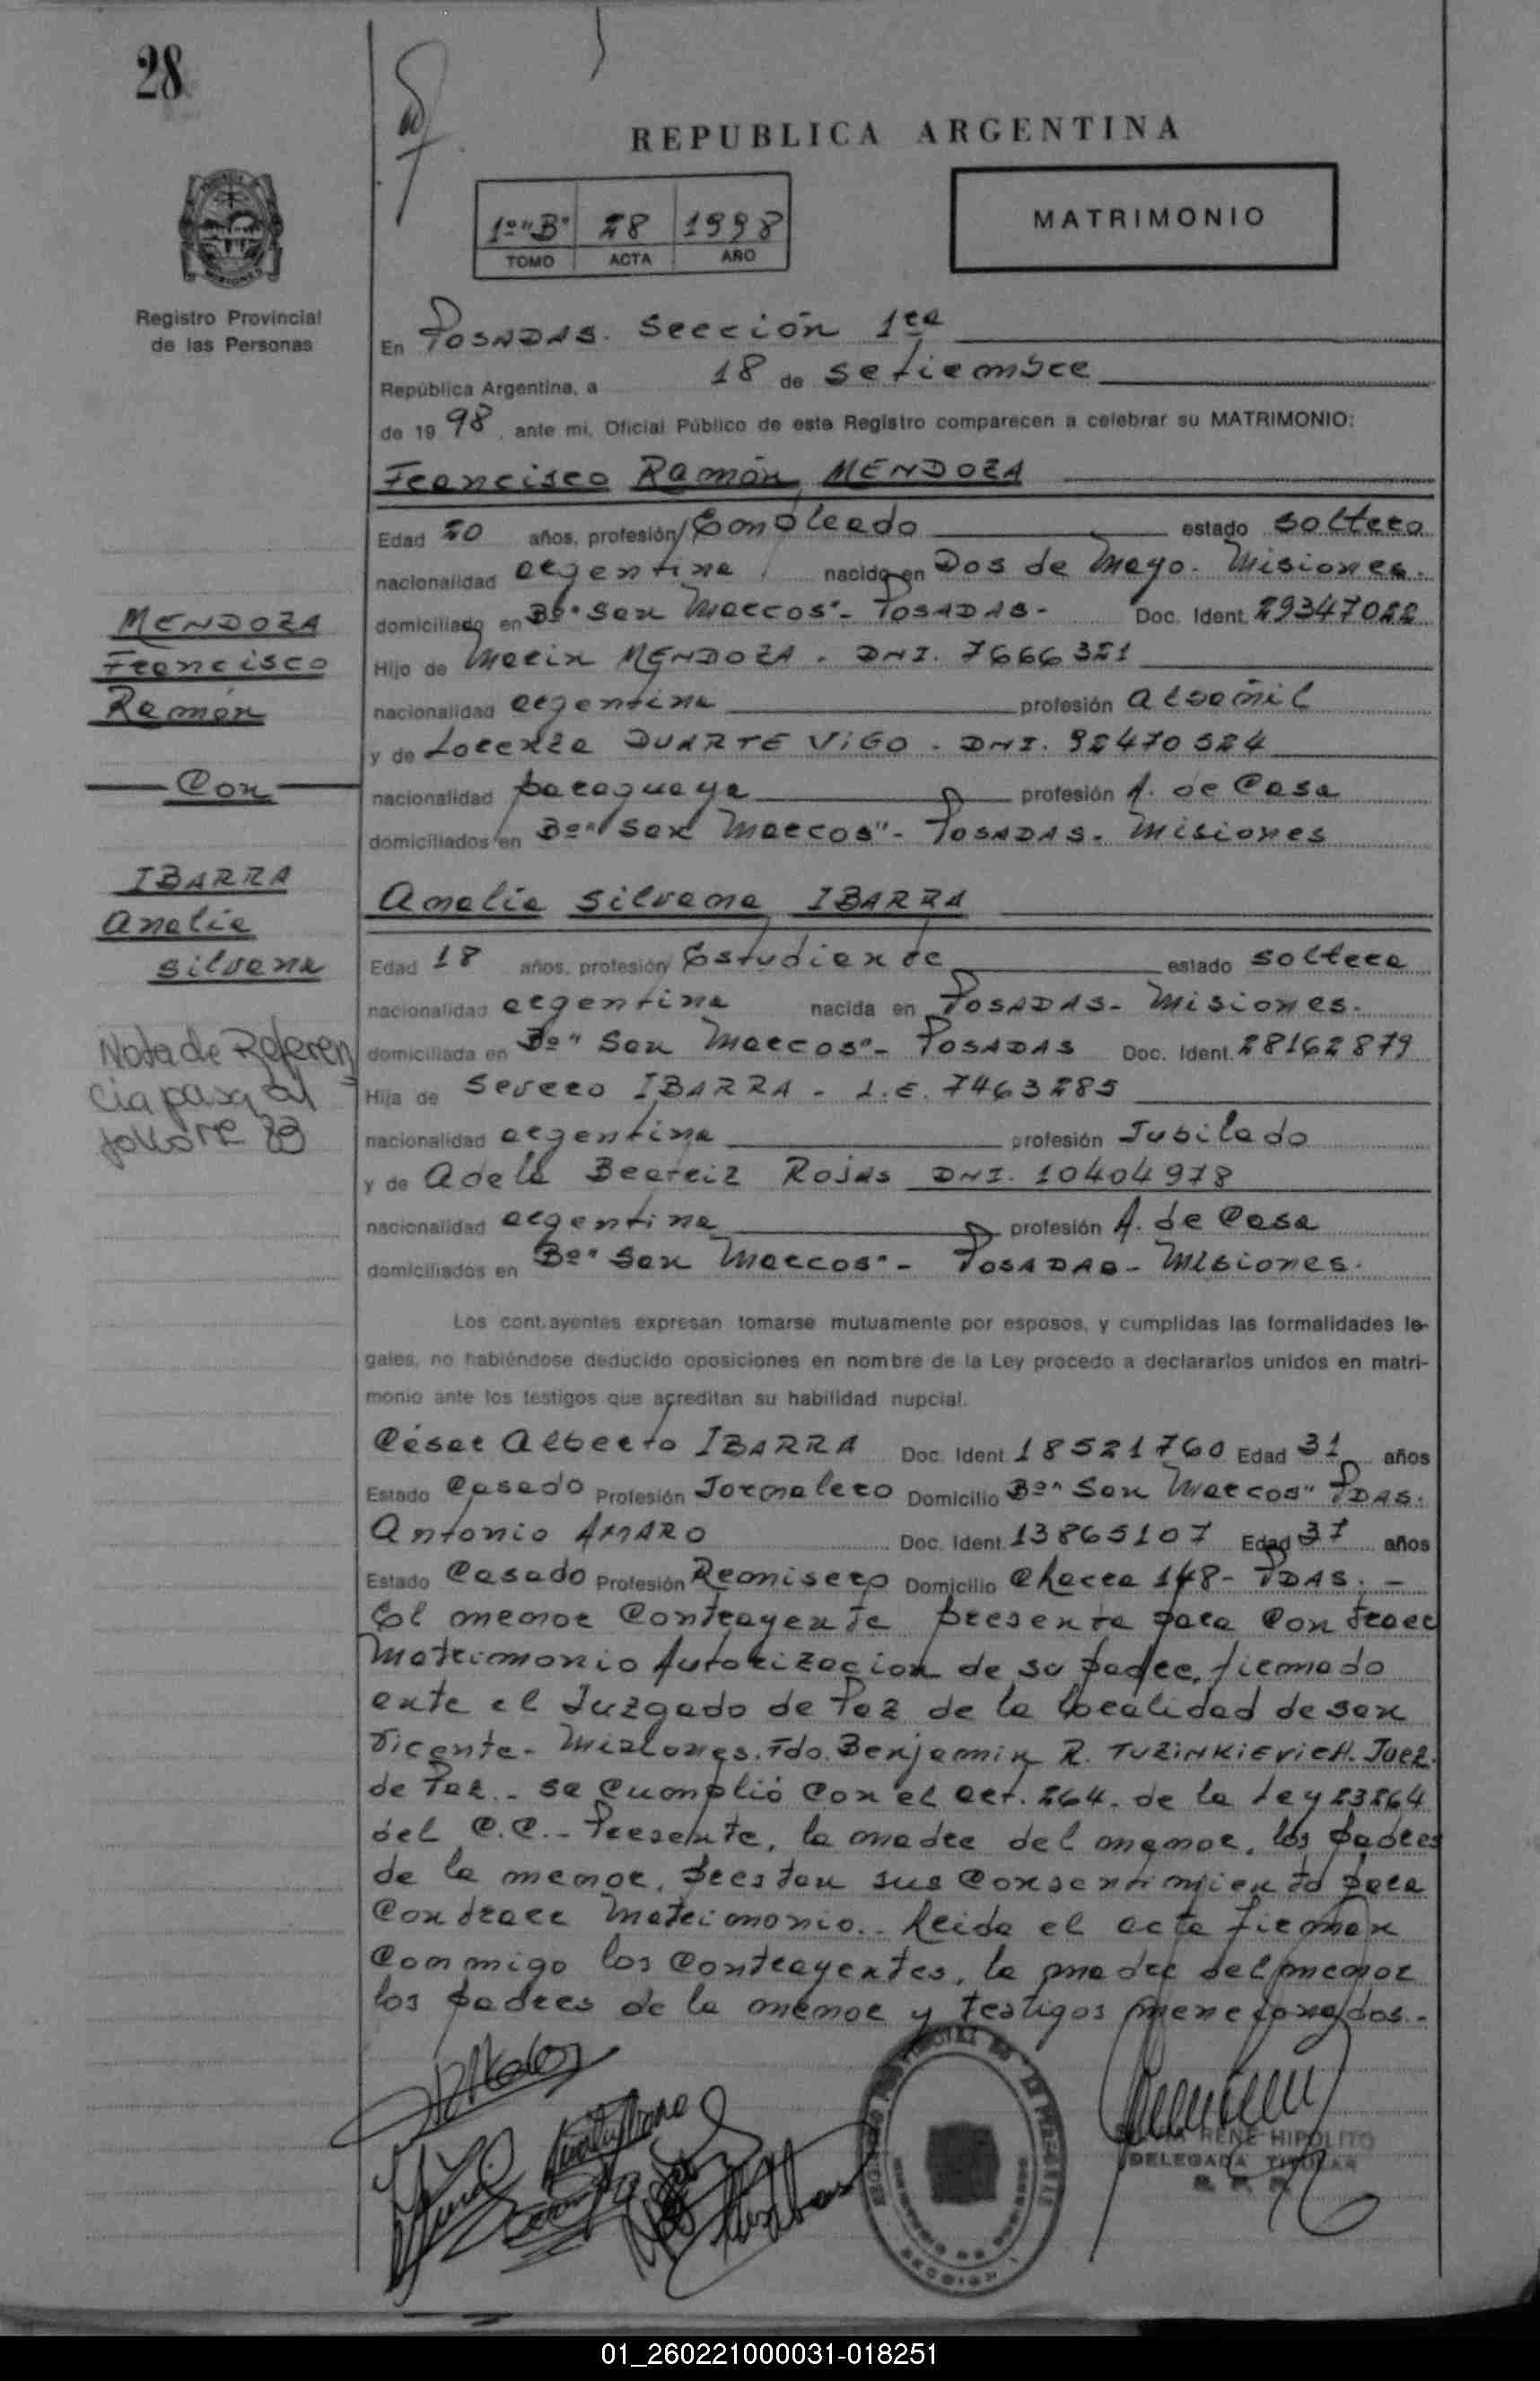 28
REPUBLICA ARGENTINA
1º "B" 28 1998
TOMO ACTA AÑO
MATRIMONIO
Registro Provincial
de las Personas
En POSADAS. Sección 1ra
República Argentina, a 18 de setiembre
de 19 98, ante mi, Oficial Público de este Registro comparecen a celebrar su MATRIMONIO:
Francisco Ramón MENDOZA
Edad 20 años, profesión Empleado estado soltero
nacionalidad argentina nacido en Dos de Mayo. Misiones.
domiciliado en Bº "San Marcos" - POSADAS - Doc. Ident. 29347022
Hijo de Maria MENDOZA. DNI. 7666321
nacionalidad argentina profesión albañil
y de Lorenza DUARTE VIGO. DNI. 92470524
nacionalidad paraguaya profesión A. de Casa
domiciliados en Bº "San Marcos" - POSADAS. Misiones
MENDOZA
Francisco
Ramón
Con
IBARRA
Analia
Silvana
Nota de Referen
cia pasa al
folio Nº
Analia Silvana IBARRA
Edad 18 años, profesión Estudiante estado soltera
nacionalidad argentina nacida en POSADAS - Misiones.
domiciliada en Bº "San Marcos" - POSADAS Doc. Ident. 28162879
Hija de Severo IBARRA - L.E. 7463285
nacionalidad argentina profesión Jubilado
y de Adela Beatriz Rojas DNI. 10404978
nacionalidad argentina profesión A. de Casa
domiciliados en Bº "San Marcos" - POSADAS - Misiones.
Los cont.ayentes expresan tomarse mutuamente por esposos, y cumplidas las formalidades le-
gales, no habiéndose deducido oposiciones en nombre de la Ley procedo a declararlos unidos en matri-
monio ante los testigos que acreditan su habilidad nupcial.
César Alberto IBARRA Doc. Ident. 18521760 Edad 31 años
Estado Casado Profesión Jornalero Domicilio Bº "San Marcos" PDAS.
Antonio AMARO Doc. Ident. 13865107 Edad 37 años
Estado Casado Profesión Remisero Domicilio Chacra 148 - PDAS. -
El menor Contrayente presenta para Contraer
Matrimonio Autorización de su padre, firmado
ante el Juzgado de Paz de la localidad de San
Vicente - Misiones. Fdo. Benjamin R. TUZINKIEVICH. Juez.
de Paz. - Se Cumplió Con el art. 264. de la Ley 23264
del C.C. - Presente, la madre del menor, los padres
de la menor, prestan sus Consentimiento para
Contraer Matrimonio.. Leida el acta firman
Conmigo los Contrayentes, la madre del menor
los padres de la menor y testigos mencionados. -
RENE HIPOLITO
DELEGADA TITULAR
01_260221000031-018251